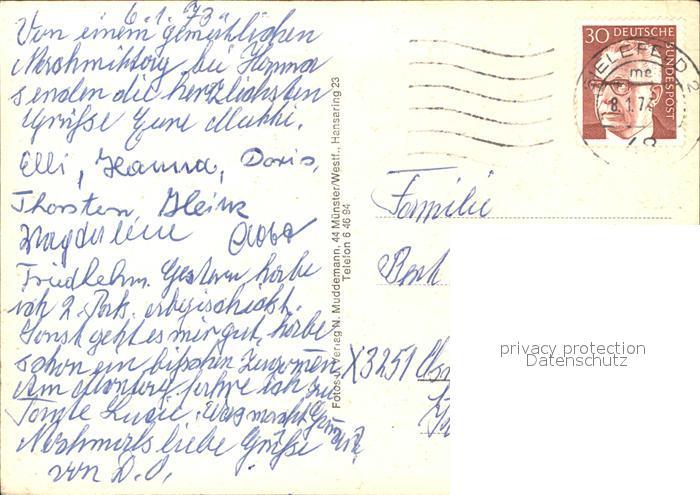 6.1.73
Von einem gemütlichen
Nachmittag bei Hanna
senden die herzlichsten
Grüße Eure Mutti.
Elli, Hanna, Doris,
Thorsten, Heinz
Magdalene
Friedhelm. Gestern habe
ich 2 abgeschickt.
Sonst geht es mir gut, habe
schon ein bißchen
Am Montag fahre ich zu
Tante Was macht
Nochmals liebe Grüße
von
Fotos u. Verlag N. Muddemann, 44 Münster/Westf., Hansaring 23
Telefon 6 46 94
30 DEUTSCHE
BUNDESPOST
BIELEFELD 2
mc
8.1.73
48
Familie
X3251
privacy protection
Datenschutz